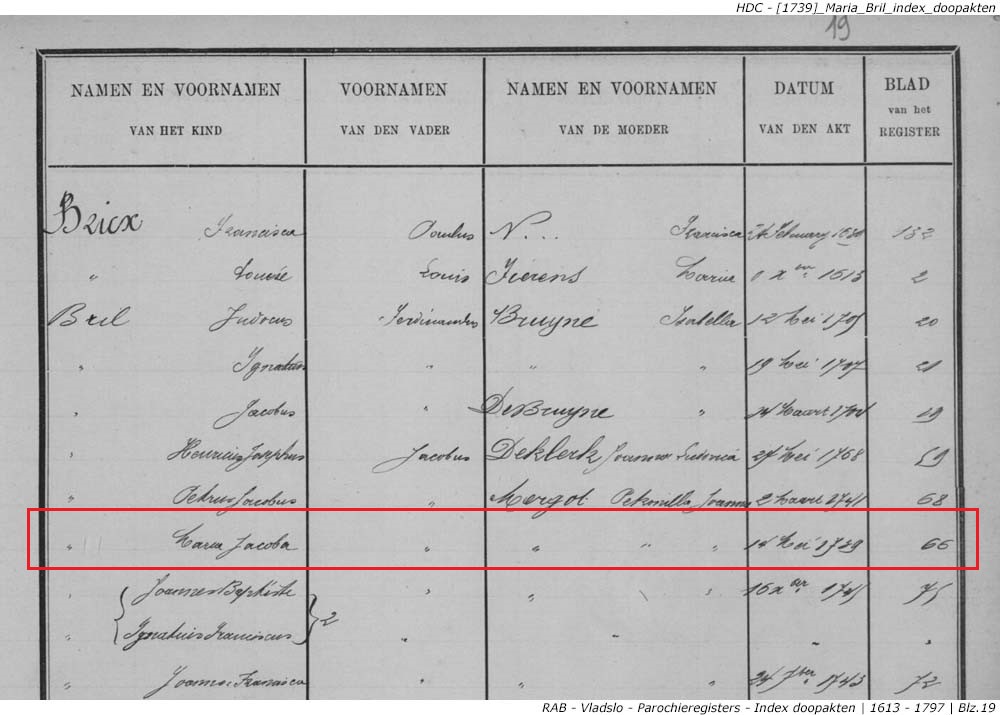 HDC - [1739]_Maria_Bril_index_doopakten
19
NAMEN EN VOORNAMEN VAN HET KIND | VOORNAMEN VAN DEN VADER | NAMEN EN VOORNAMEN VAN DE MOEDER | DATUM VAN DEN AKT | BLAD van het REGISTER
Bricx Francisca Paulus N... Francisca February 182
" Louis Maria 1613 2
Bril Judocus Ferdinandus Bruyne Isabella 12 Mei 20
" Ignatius " " " 19 Mei 21
" Jacobus " DeBruyne " Maart 19
" Henricus Josephus Jacobus Deklerk Joanna 27 Mei 1768 59
" Petrus Jacobus " Mergot Petronilla Joanna 2 Maart 1741 68
" Maria Jacoba " " " " 14 Mei 1739 66
" Joannes Baptiste " " " 75
" Ignatius Franciscus 2 " " " "
" Joanna Francisca " " " 24 7ber 1743 72
RAB - Vladslo - Parochieregisters - Index doopakten | 1613 - 1797 | Blz.19